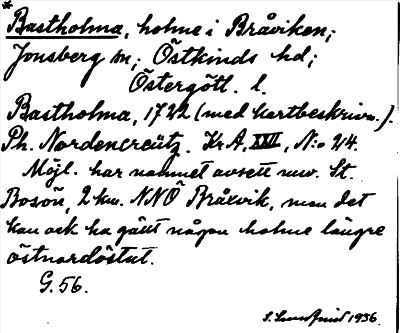 * Bastholma, holme i Bråviken;
Jonsberg sn; Östkinds hd;
Östergötl. l.
Bastholma, 1722 (med kartbeskrivn.).
Ph. Nordencreütz. KrA, XVII, N:o 214.
Möjl. har namnet avsett nuv. St.
Bosön, 2 km. NNÖ Bråxvik, men det
kan ock ha gällt någon holme längre
östnordöstut.
G. 56.
1936.